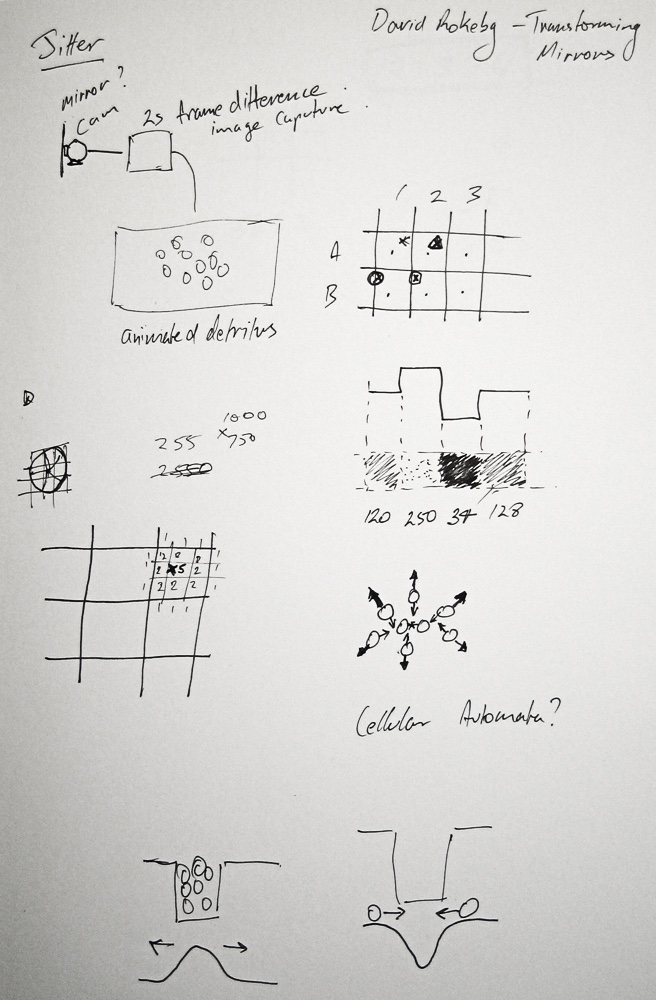 Jitter
David Rokeby - Transforming
Mirrors
mirror?
Cam
2s frame difference
image caputure.
1 2 3
A
B
animated detritus
1000
255 ×750
120 250 34 128
2
2 5 2
2 2 2
Cellular Automata?